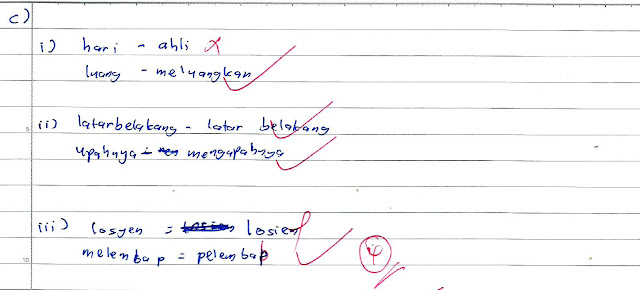 c)
i) hari - ahli
luang - meluangkan
ii) latarbelakang - latar belakang
upahnya - mengapahnya
iii) losyen = losien
melembap = pelembab
4